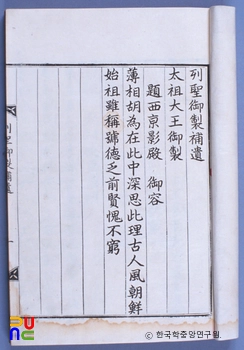 列聖御製補遺
太祖大王御製
題西京影殿 御容
薄相胡為在此中深思此理古人風朝鮮
始祖雖稱號德乏前賢愧不窮
列聖御製補遺
一
© 한국학중앙연구원